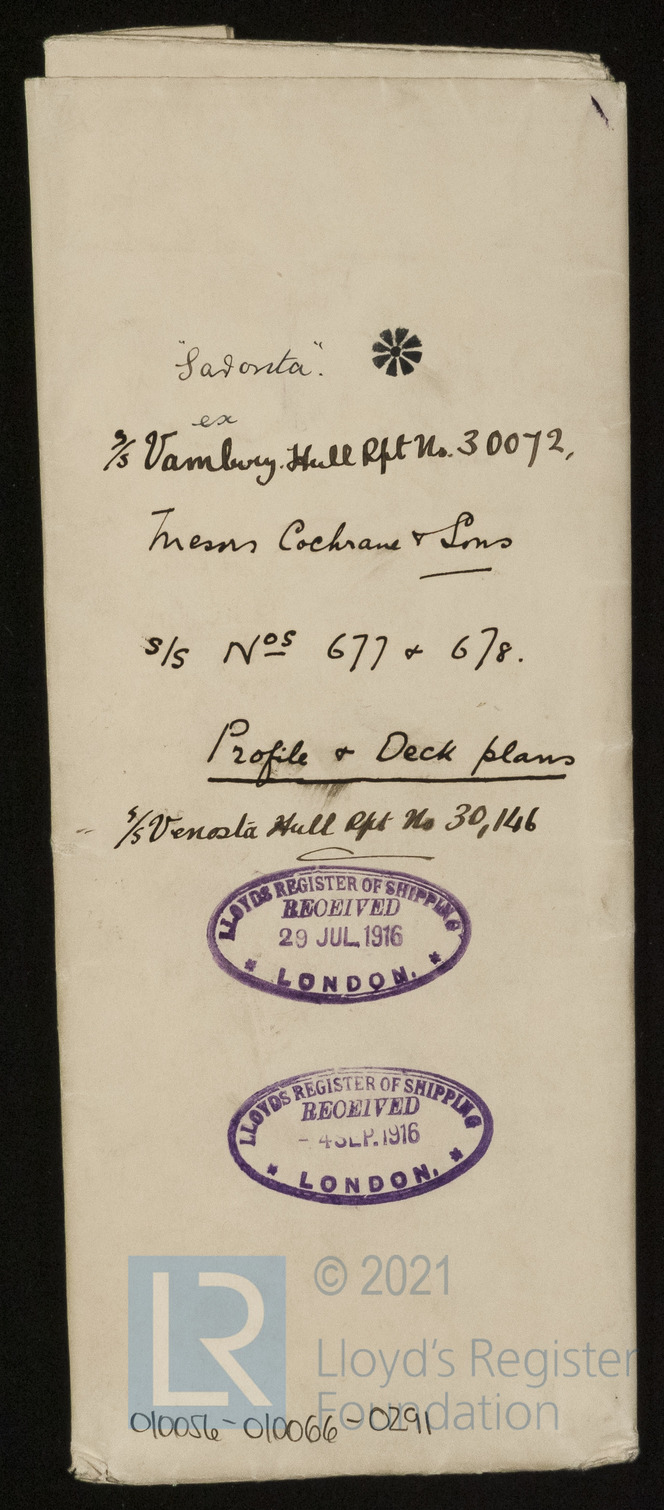 "Sadonta".
ex
s/s Vambery. Hull Rpt No. 30072,
Messrs Cochrane & Sons
s/s Nos 677 & 678.
Profile & Deck plans
s/s Venosta Hull Rpt No 30,146
LLOYDS REGISTER OF SHIPPING
RECEIVED
29 JUL.1916
* LONDON. *
LLOYDS REGISTER OF SHIPPING
RECEIVED
- 4 SEP.1916
* LONDON. *
LR
© 2021
Lloyd's Register
Foundation
010056-010066-0291